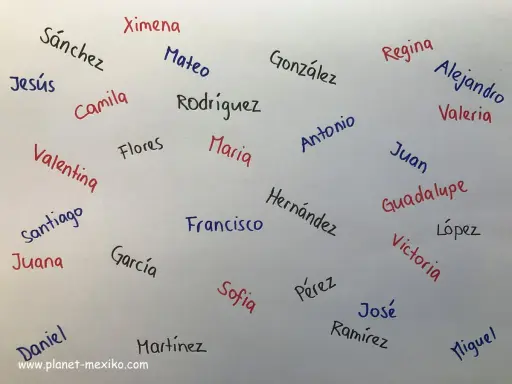 Ximena
Sánchez
Mateo
González
Regina
Alejandro
Jesús
Camila
Rodríguez
Valeria
Antonio
Flores
Maria
Juan
Valentina
Guadalupe
Hernández
Santiago
Francisco
López
Victoria
Juana
García
Sofia
Pérez
José
Ramírez
Daniel
Martínez
Miguel
www.planet-mexiko.com